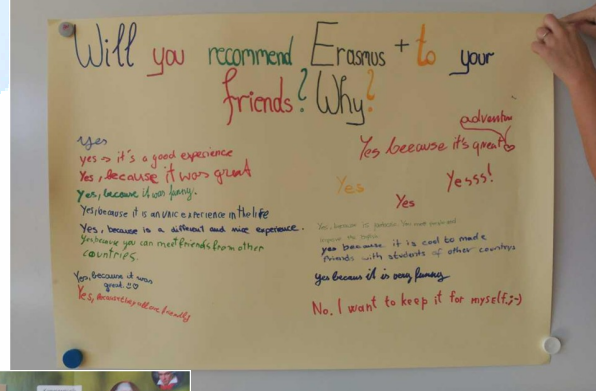 Will you recommend Erasmus + to your
friends? Why?
yes
yes → it's a good experience
Yes, because it was great
Yes, because it was funny.
Yes, because it is an unic experience in the life
Yes, because is a different and nice experience.
Yes because you can meet friends from other
countries.
Yes, because it was
great. ☺♡
Yes, because they all are friendly
adventure
Yes because it's great
Yes
Yesss!
Yes
Yes, because is fantastic
improve
yes because it is cool to made
friends with students of other countrys
Yes becaus it is very funny
No, I want to keep it for myself ;-)